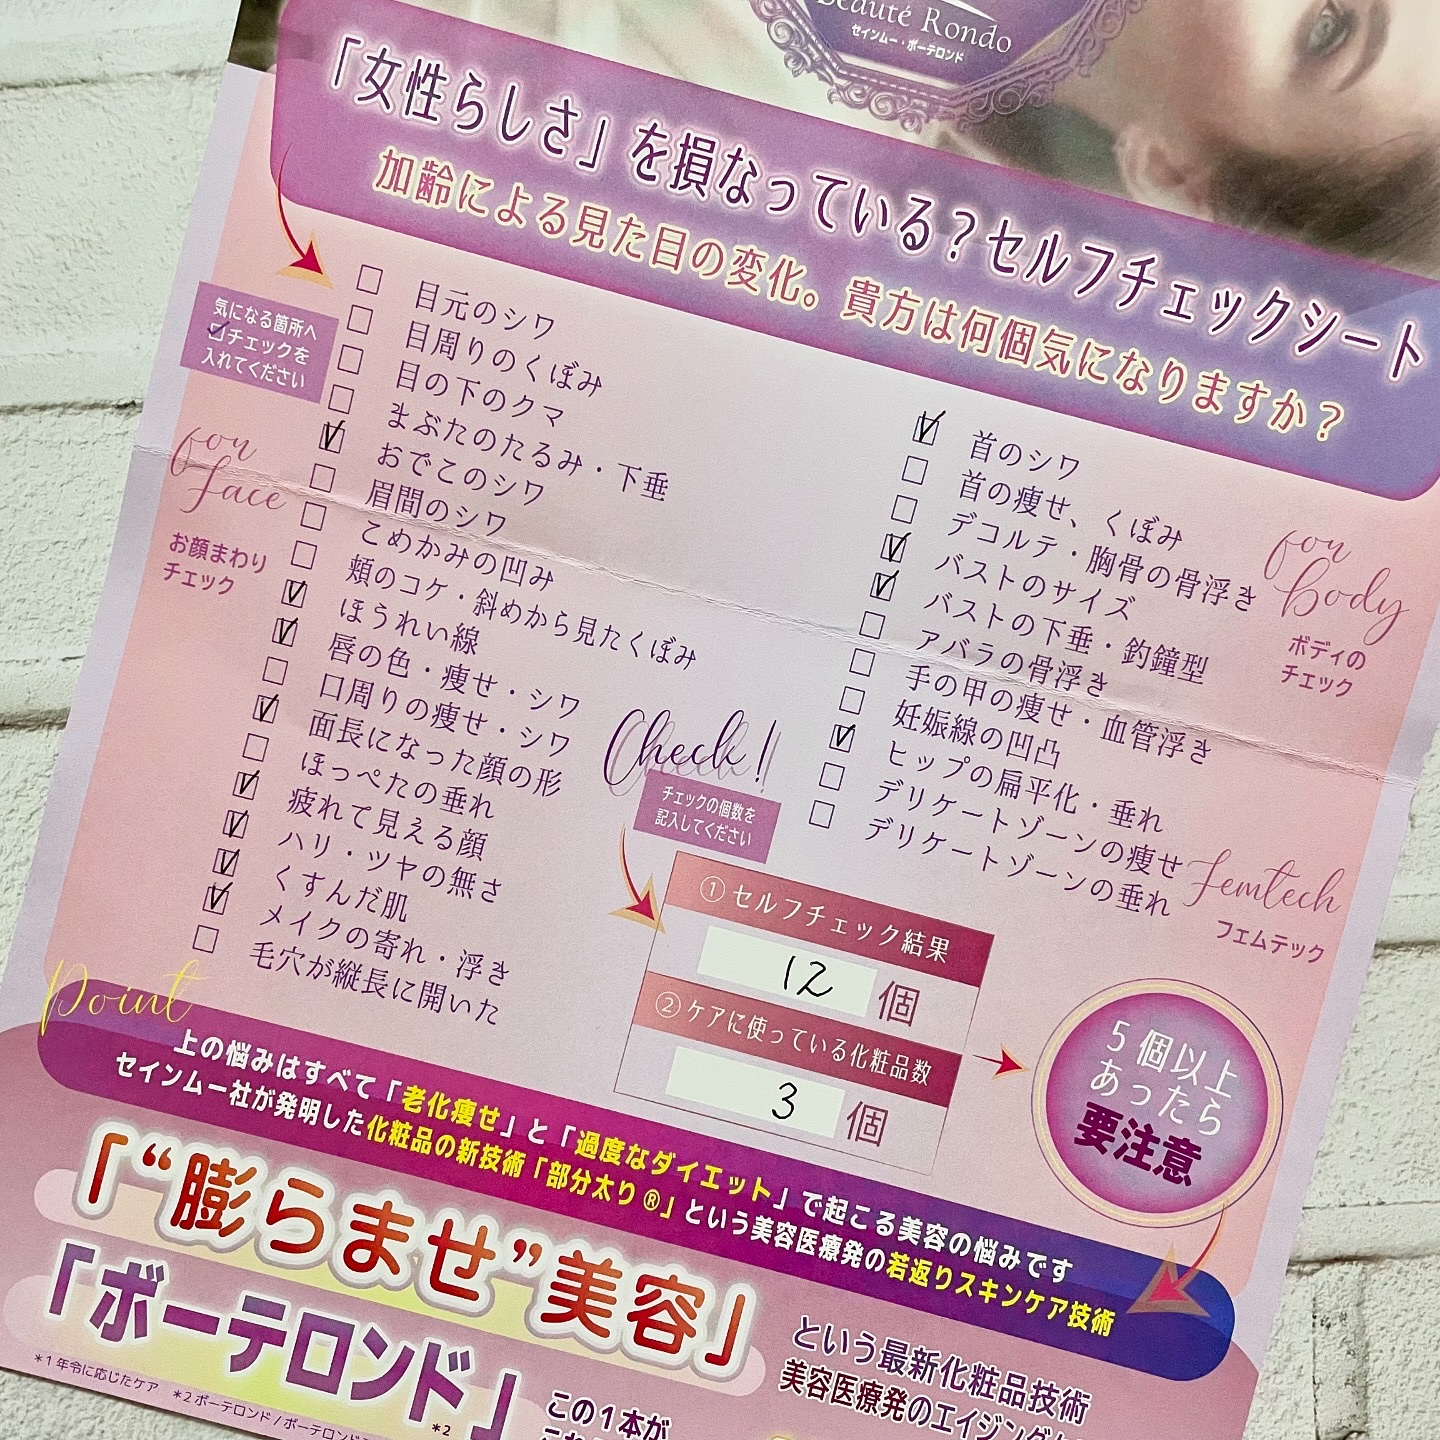 Beauté Rondo
セインムー・ボーテロンド
「女性らしさ」を損なっている？セルフチェックシート
加齢による見た目の変化。貴方は何個気になりますか？
気になる箇所へ
☑チェックを
入れてください
for
face
お顔まわり
チェック
目元のシワ
目周りのくぼみ
目の下のクマ
まぶたのたるみ・下垂
おでこのシワ
眉間のシワ
こめかみの凹み
頬のコケ・斜めから見たくぼみ
ほうれい線
唇の色・痩せ・シワ
口周りの痩せ・シワ
面長になった顔の形
ほっぺたの垂れ
疲れて見える顔
ハリ・ツヤの無さ
くすんだ肌
メイクの寄れ・浮き
毛穴が縦長に開いた
首のシワ
首の痩せ、くぼみ
デコルテ・胸骨の骨浮き
バストのサイズ
バストの下垂・釣鐘型
アバラの骨浮き
手の甲の痩せ・血管浮き
妊娠線の凹凸
ヒップの扁平化・垂れ
デリケートゾーンの痩せ
デリケートゾーンの垂れ
for
body
ボディの
チェック
Femtech
フェムテック
Check!!
チェックの個数を
記入してください
①セルフチェック結果
12 個
②ケアに使っている化粧品数
3 個
5個以上
あったら
要注意
Point
上の悩みはすべて「老化痩せ」と「過度なダイエット」で起こる美容の悩みです
セインムー社が発明した化粧品の新技術「部分太り®」という美容医療発の若返りスキンケア技術
「“膨らませ”美容」
という最新化粧品技術
「ボーテロンド」*2
美容医療発のエイジング
この1本が
*1 年令に応じたケア *2 ボーテロンド/ボーテロンド